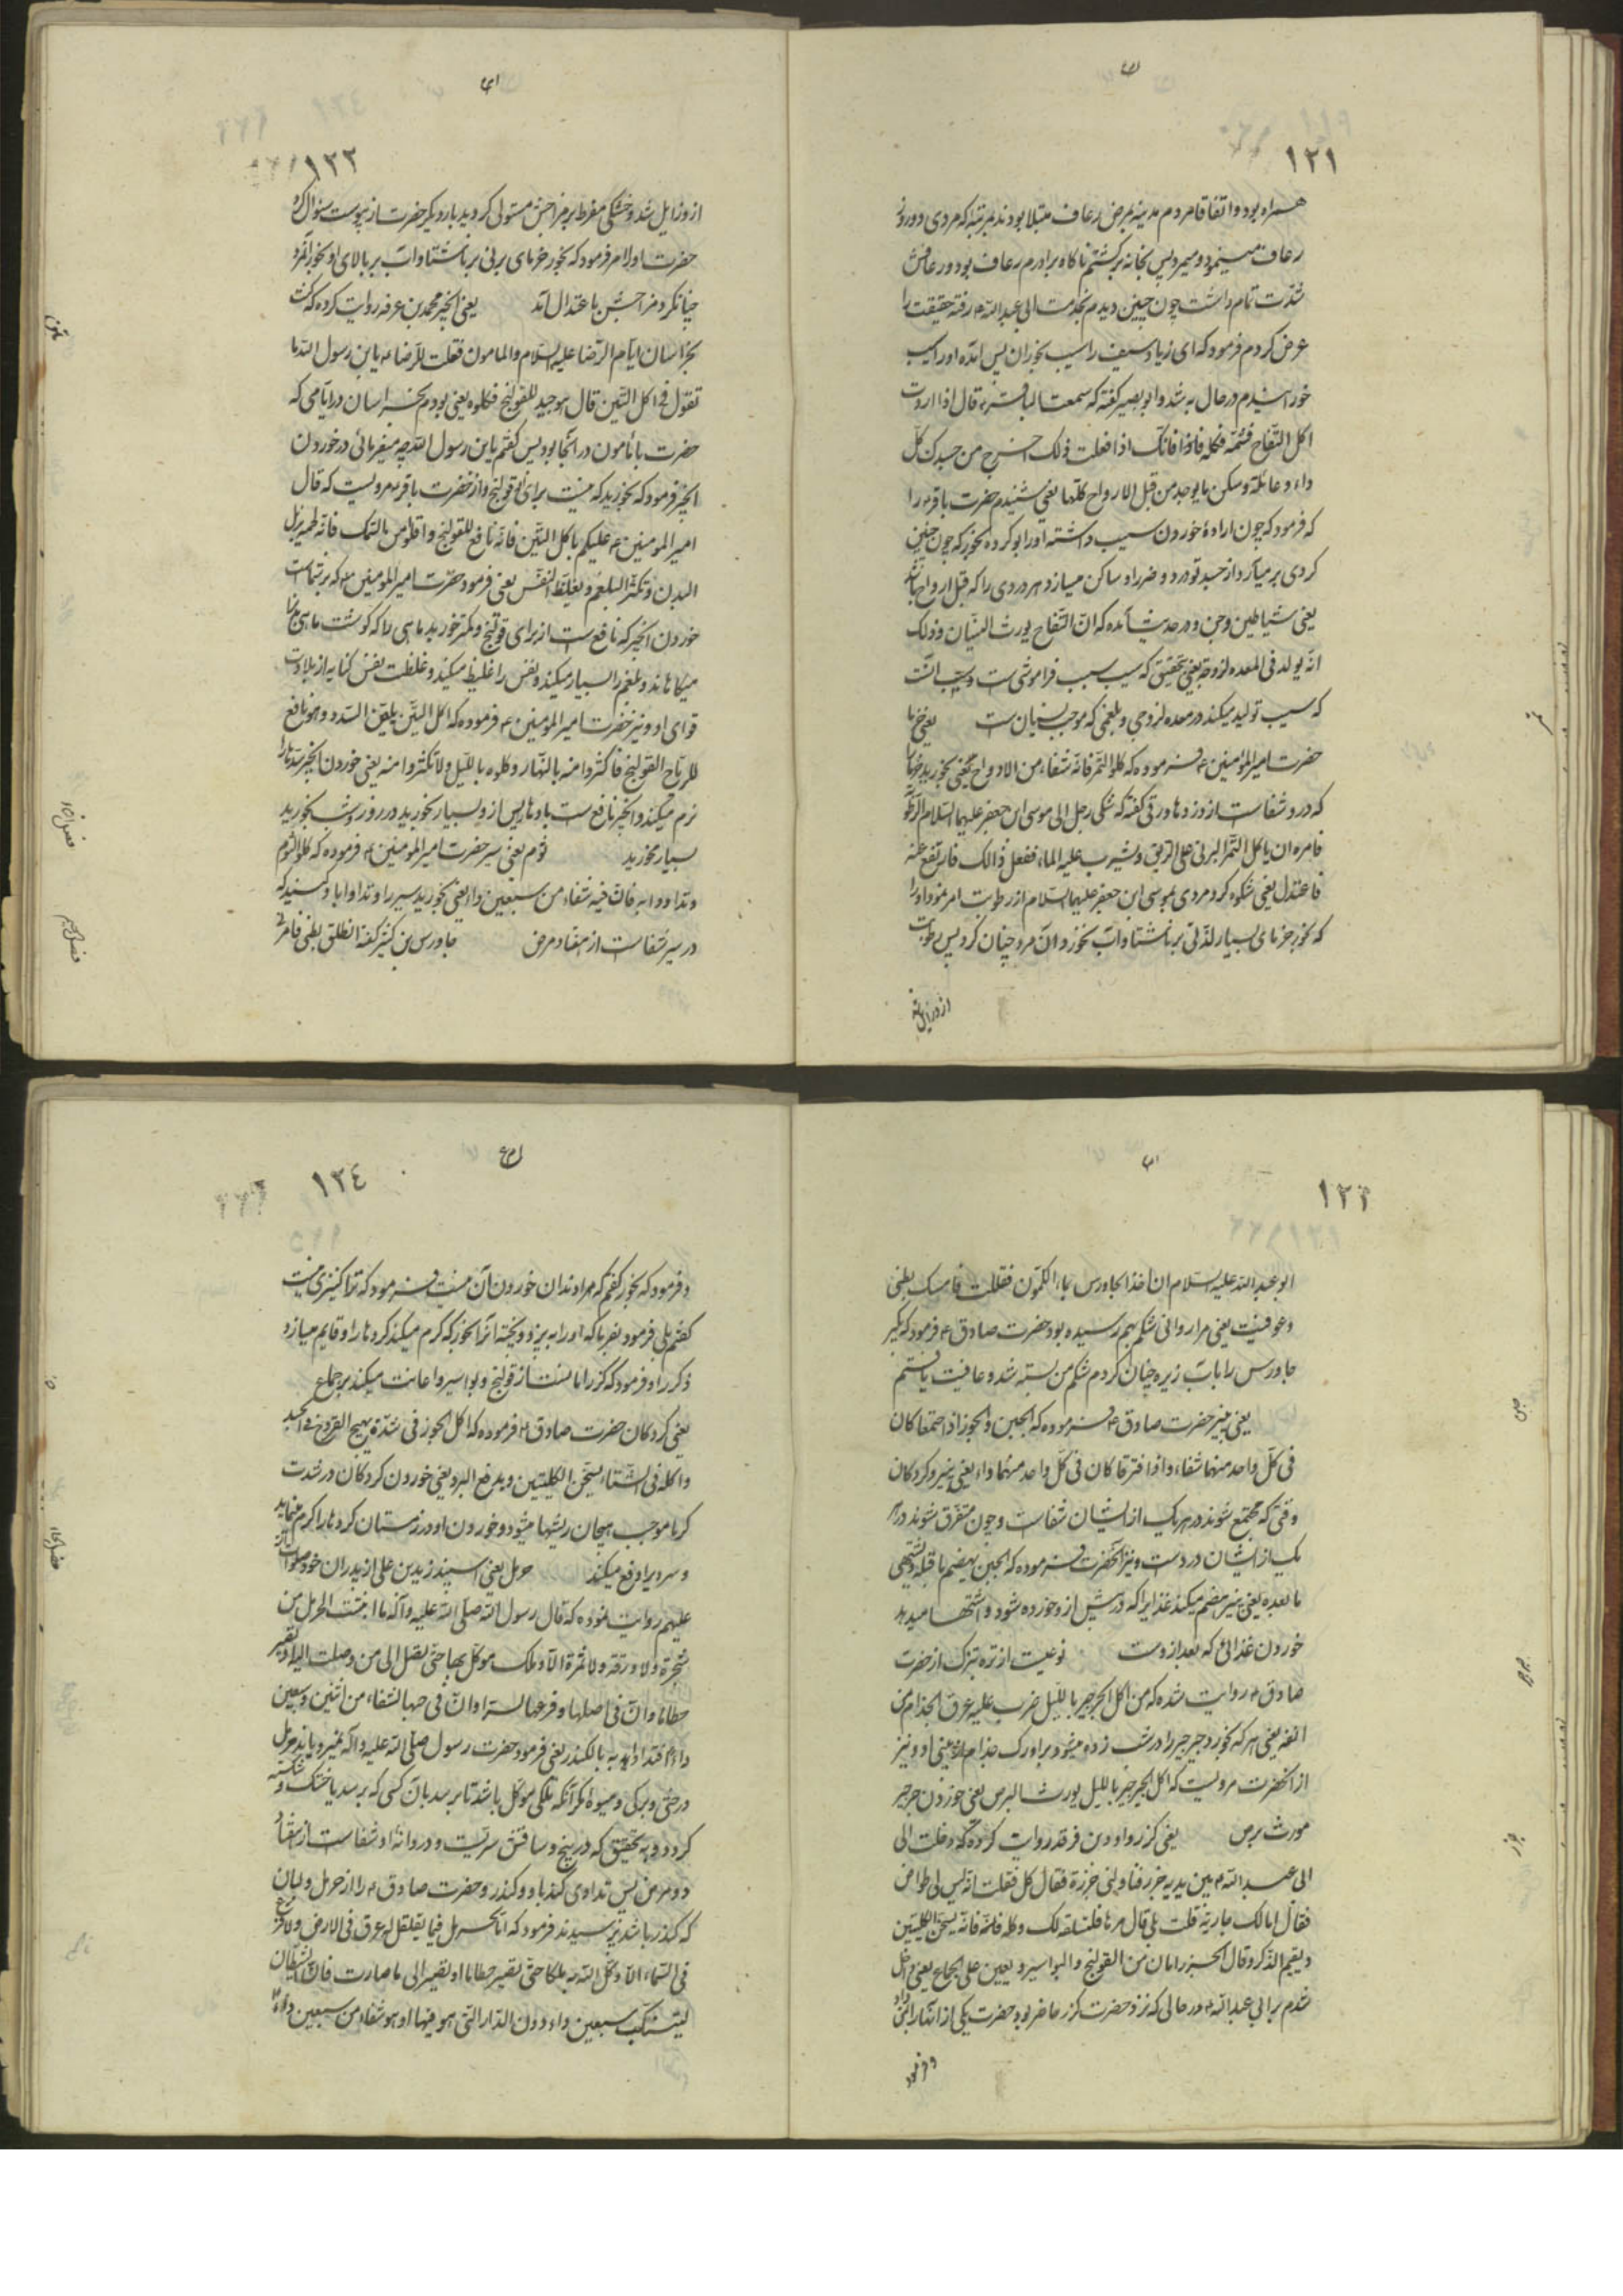 ١٢١
همراه بود و اتفاقا مردم مدینه بمرض رعاف مبتلا بودند بمرتبه که مردی دو روز
رعاف مینمود و میمرد پس بخانه برکشتم ناکاه برادرم رعاف بود و رعافش
شدت تمام داشت چون چنین دیدم بخدمت ابی عبدالله رفته حقیقت را
عرض کردم فرمود که ای زیاد سیف را سیب بخوران پس آمده او را سیب
خورانیدم در حال به شد و ابو بصیر کفته که سمعت الباقر قال اذا اردت
اکل التفاح فشمه فکله فانک اذا فعلت ذلک اخرج من جسدک کل
داء و عائلة و سکن ما یوجد من قبل الارواح کلها یعنی شنیدم حضرت باقر را
که فرمود که چون ارادۀ خوردن سیب داشته او را بو کرده بخور که چون چنین
کردی بر میآرد از جسد تو درد و ضرر را و ساکن میسازد هر دردی را که قبل ارواح
یعنی شیاطین و جن و در حدیث آمده که ان التفاح یورث النسیان و ذلک
انه یولد فی المعده لزوجة یعنی بتحقیق که سیب سبب فراموشی ست و سبب آنست
که سیب تولید میکند در معده لزوجی و بلغمی که موجب نسیان ست یعنی خرما
حضرت امیر المؤمنین فرموده که کلوا التمر فانه شفاء من الادواء یعنی بخورید خرما
که درو شفاست از دردها و رقی کفته که شکی رجل الی موسی ابن جعفر علیهما السلام الرطوبة
فامره ان یاکل التمر البرنی علی الریق و یشرب علیه الماء ففعل ذالک فارتفع عنه
فاعتدل یعنی شکوه کرد مردی بموسی ابن جعفر علیهما السلام از رطوبت امر نمود او را
که بخور خرمای بسیار لذتی بر ناشتا و آب بخور و آن مرد چنان کرد پس رطوبت
از و زایل شد
تمر
١٢٢
از و زایل شد و خشکی مفرط بر مزاجش مستولی کردید بار دیکر حضرت از یبوست سئوال کرد
حضرت او را امر فرمود که بخور خرمای برنی بر ناشتا و آب بر بالای او نخور آنمرد
چنان کرد مزاجش باعتدال آمد یعنی انجیر محمد بن عرفه روایت کرده که کنت
بخراسان ایام الرضا علیه السلام و المامون فقلت للرضا یابن رسول الله ما
تقول فی اکل التین قال هو جید للقولنج فکلوه یعنی بودم بخراسان در ایامی که
حضرت با مأمون در آنجا بود پس کفتم یابن رسول الله چه میفرمائی در خوردن
انجیر فرمود که بخورید که منیت برای قولنج و از حضرت باقر مرویست که قال
امیر المومنین علیکم باکل التین فانه نافع للقولنج و اقلوا من السمک فانه لحمه یذبل
البدن و تکثر البلغم و یغلیظ النفس یعنی فرمود حضرت امیر المومنین که بر شماست
خوردن انجیر که نافع ست از برای قولنج و کمتر خورید ماهی را که کوشت ماهی بدنرا
میکاهاند و بلغم را بسیار میکند و نفس را غلیظ میکند و غلظت نفس کنایه از بلادت
قوای او و نیز حضرت امیر المومنین فرموده که اکل التین یلین السدد و هو نافع
للریاح القولنج فاکثروا منه بالنهار و کلوه باللیل و لا تکثروا منه یعنی خوردن انجیر سدها را
نرم میکند و انجیر نافع ست بادها را پس از و بسیار بخورید در روز و شب بخورید
بسیار مخورید ثوم یعنی سیر حضرت امیر المومنین فرموده که کلوا الثوم
و تداووا به فان فیه شفاء من سبعین داء یعنی بخورید سیر را و تداوا با او کنید که
در سیر شفاست از هفتاد مرض جاورس بن کثیر کفته انطلق بطنی فامر
١٢٣
ابو عبدالله علیه السلام ان اخذ الجاورس بماء الکمون فقلت فامسک بطنی
و عوفیت یعنی مرا روانی شکم بهم رسیده بود حضرت صادق فرمود که بکیر
جاورس را با آب زیره چنان کردم شکم من بسته شد و عافیت یافتم
یعنی پنیر حضرت صادق فرموده که الجبن و الجوز اذا اجتمعا کان
فی کل واحد منهما شفاء و اذا افترقا کان فی کل واحد منهما داء یعنی پنیر و کردکان
وقتی که مجتمع شوند در هر یک از ایشان شفاست و چون متفرق شوند در هر
یک از ایشان دردست و نیز آنحضرت فرموده که الجبن یهضم ما قبله و یشتهی
ما بعده یعنی پنیر هضم میکند غذا را که در پیش از و خورده شود و اشتها میدهد
خوردن غذائی که بعد از وست نوعیست از تره تیزک از حضرت
صادق روایت شده که من اکل الجرجیر باللیل ضرب علیه عرق الجذام من
انفه یعنی هر که بخورد جرجیر را در شب زده میشود بر او رک جذام از بینی او و نیز
از آنحضرت مرویست که اکل الجرجیر باللیل یورث البرص یعنی خوردن جرجیر
مورث برص یعنی کزر داود بن فرقد روایت کرده که دخلت الی
ابی عبدالله بین یدیه جزر فناولنی جزرة فقال کل فقلت انه لیس لی طواحن
فقال امالک جاریة قلت بلی قال مرها فلتسلقه لک و کله فانه یسخن الکلیتین
و یقیم الذکر و قال الجزر امان من القولنج و البواسیر و یعین علی الجماع یعنی داخل
شدم بر ابی عبدالله در حالی که نزد حضرت کزر حاضر بود حضرت یکی از آنها را بمن داد
و فرمود
جبن
جرجیر
جزر
١٢٤
و فرمود که بخور کفتم که مرا دندان خوردن آن نیست فرمود که ترا کنیزی نیست
کفتم بلی فرمود بفرما که او را به پزد و پخته آنرا بخور که کرم میکند کردها را و قایم میسازد
ذکر را و فرمود که کزر امانست از قولنج و بواسیر و اعانت میکند بر جماع
یعنی کردکان حضرت صادق فرموده که اکل الجوز فی شدة یهیج القروح فی الجسد
و اکله فی الشتاء یسخن الکلیتین و یدفع البرد یعنی خوردن کردکان در شدت
کرما موجب هیجان ریشها میشود و خوردن او در زمستان کردها را کرم مینماید
و سردی را دفع میکند حرمل یعنی اسپند زید بن علی از پدران خود صلوات الله
علیهم روایت نموده که قال رسول الله صلی الله علیه و آله ما انبتت الحرمل من
شجرة و لا ورقة و لا ثمرة الا و ملک موکل بها حتی یصل الی من وصلت الیه او تصیر
حطاما و ان فی اصلها و فرعها لسرا و ان فی حبها الشفاء من اثنین و سبعین
داء فتداووا به بالکندر یعنی فرمود حضرت رسول صلی الله علیه و آله نمیرویاند حرمل
درختی و برکی و میوه مکر آنکه ملکی موکل باشد تا برسد بآن کسی که برسد یا خشک و شکسته
کردد و به تحقیق که در بیخ و ساقش سریست و در دانۀ او شفاست از هفتاد
و دو مرض پس تداوی کنید باو و کندر و حضرت صادق را از حرمل و لبان
که کندر باشد پرسیدند فرمود که اما الحرمل فما یقلقل له عرق فی الارض و لا فرع
فی السماء الا وکل الله به ملکا حتی تصیر حطاما او تصیر الی ما صارت فان الشیطان
لیتنکب سبعین دارا دون الدار التی هو فیها و هو شفاء من سبعین داء